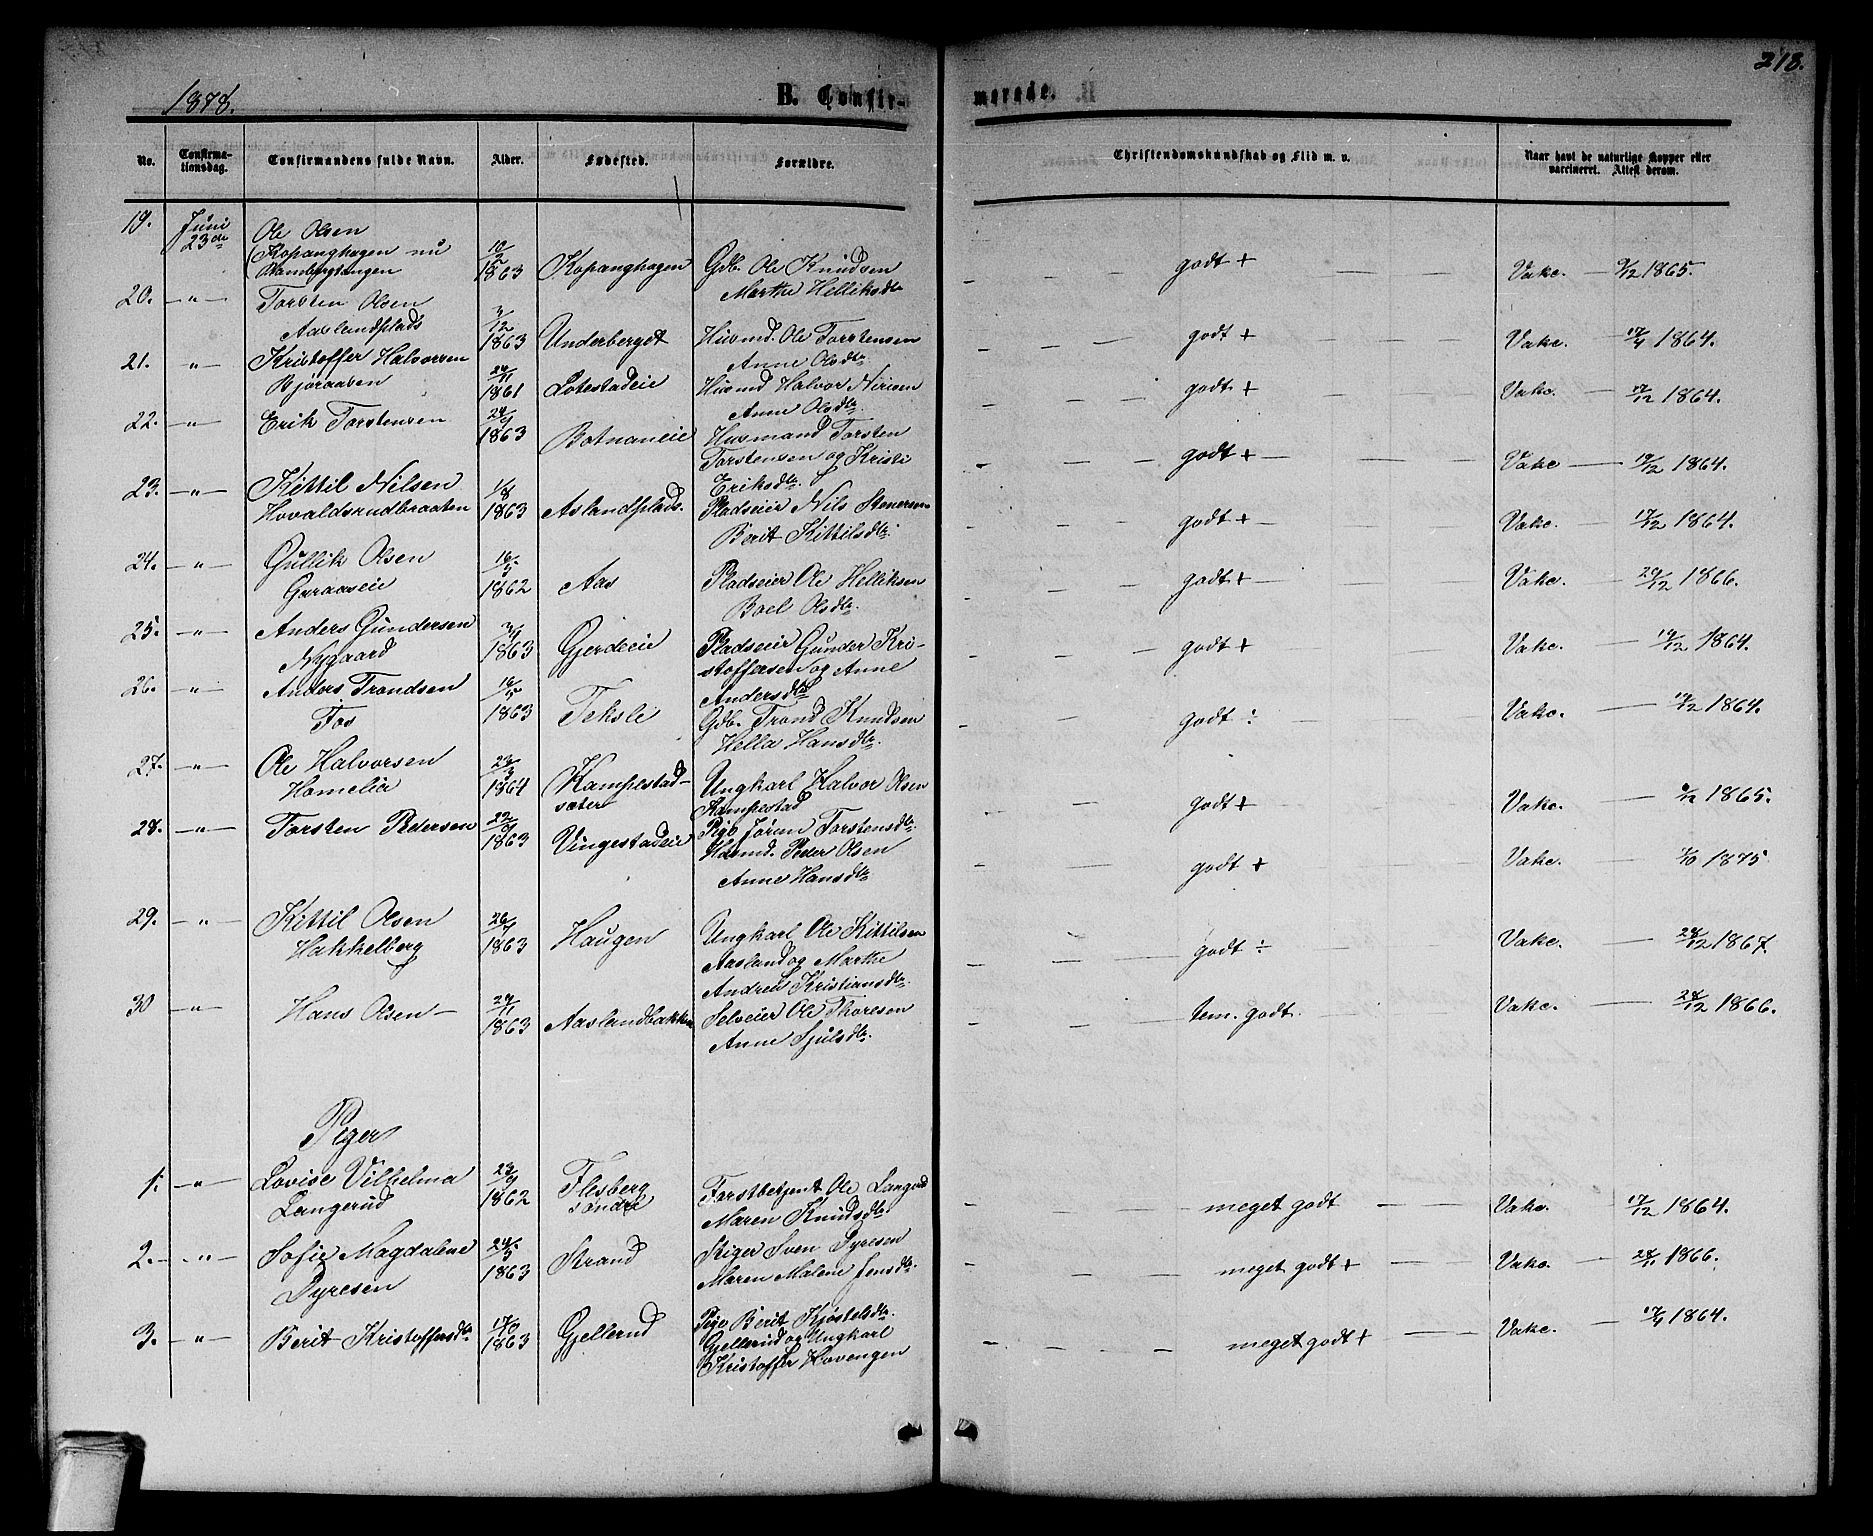 1878.
B. Confir-
merede.
218.
No.
Confirma-
tionsdag.
Confirmandens fulde Navn.
Alder.
Fødested.
Forældre.
Christendomskundskab og Flid m. v.
Naar havt de naturlige Kopper eller
vaccineret. Attest derom.
19. Juni 23de Ole Olsen
(Kopanghagen nu
10/2 1863 Kopanghagen Gdb. Ole Knudsen
Marthe Helliksdtr
godt + Vakc. 9/12 1865.
20. — " — Torsten Olsen
Aaslandplads
3/12 1863 Underberget Husmd. Ole Torstensen
Anne Olsdtr.
godt + Vakc. 1864.
21. " — Kristoffer Halvorsen
Bjøraaben
1861 Lotestadeie Husmd Halvor Nirisen
Anne Olsdtr.
godt + Vakc. 17/12 1864.
22. — " — Erik Torstensen
1863 Botnaneie Husmand Torsten
Torstensen og Kristi
Eriksdtr.
godt + Vakc — 19/12 1864.
23. — " — Kittil Nilsen
Hovaldsrudbraaten
1/8 1863 Aslandplads. Pladseier Nils Stenersen
Berit Kittilsdtr.
godt + Vakc. — 17/12 1864.
24. — " — Gullik Olsen
Garaaseie
16/5 1862 Aas Pladseier Ole Helliksen
Boel Olsdtr.
godt + Vakc. — 29/12 1866.
25. — " — Anders Gundersen
Nygaard
1863 Gjerdeie Pladseier Gunder Kri-
stoffersen og Anne
Andersdtr
godt + Vakc. — 19/12 1864.
26. — " — Anders Trondsen
Fos
16/5 1863 Teksle Gdb. Trond Knudsen
Hella Hansdtr.
godt ÷ Vakc. — 17/12 1864.
27. — " — Ole Halvorsen
Homelia
23/3 1864 Kampestad-
sæter
Ungkarl Halvor Olsen
Kampestad
Pige Jøran Torstensdtr.
godt + Vakc. — 1865.
28. — " — Torsten Pedersen
22/9 1863 Vingestadeie Husmd. Peder Olsen
Anne Hansdtr
godt + Vakc. — 1875
29. — " — Kittil Olsen
Hakkelberg
1863 Haugen Ungkarl Ole Kittilsen
Aasland og Marthe
Andrea Kristiansdtr.
godt ÷ Vakc. — 28/12 1867.
30 — " — Hans Olsen —
29/11 1863 Aaslandbakken Selveier Ole Thoresen
Anne Sjulsdtr.
tem. godt. Vakc. — 28/12 1866.
Piger
1. — " — Lovise Vilhelmia
Langerud
23/9 1862 Flesberg
søndre
Forstbetjent Ole Langerud
Maren Knudsdtr.
meget godt — — Vakc. — 17/12 1864.
2. — " — Sofie Magdalene
Dyresen
24/5 1863 Strand Skiger Sven Dyresen
Maren Malene Jensdtr.
meget godt + — Vakc. — 28/11 1866.
3. — " — Berit Kristoffersdtr
1863 Gjellerud Pige Berit Kjøstelsdtr.
Gjellerud og Ungkarl
Kristoffer Hovengen
meget godt + — Vakc. — 1864.